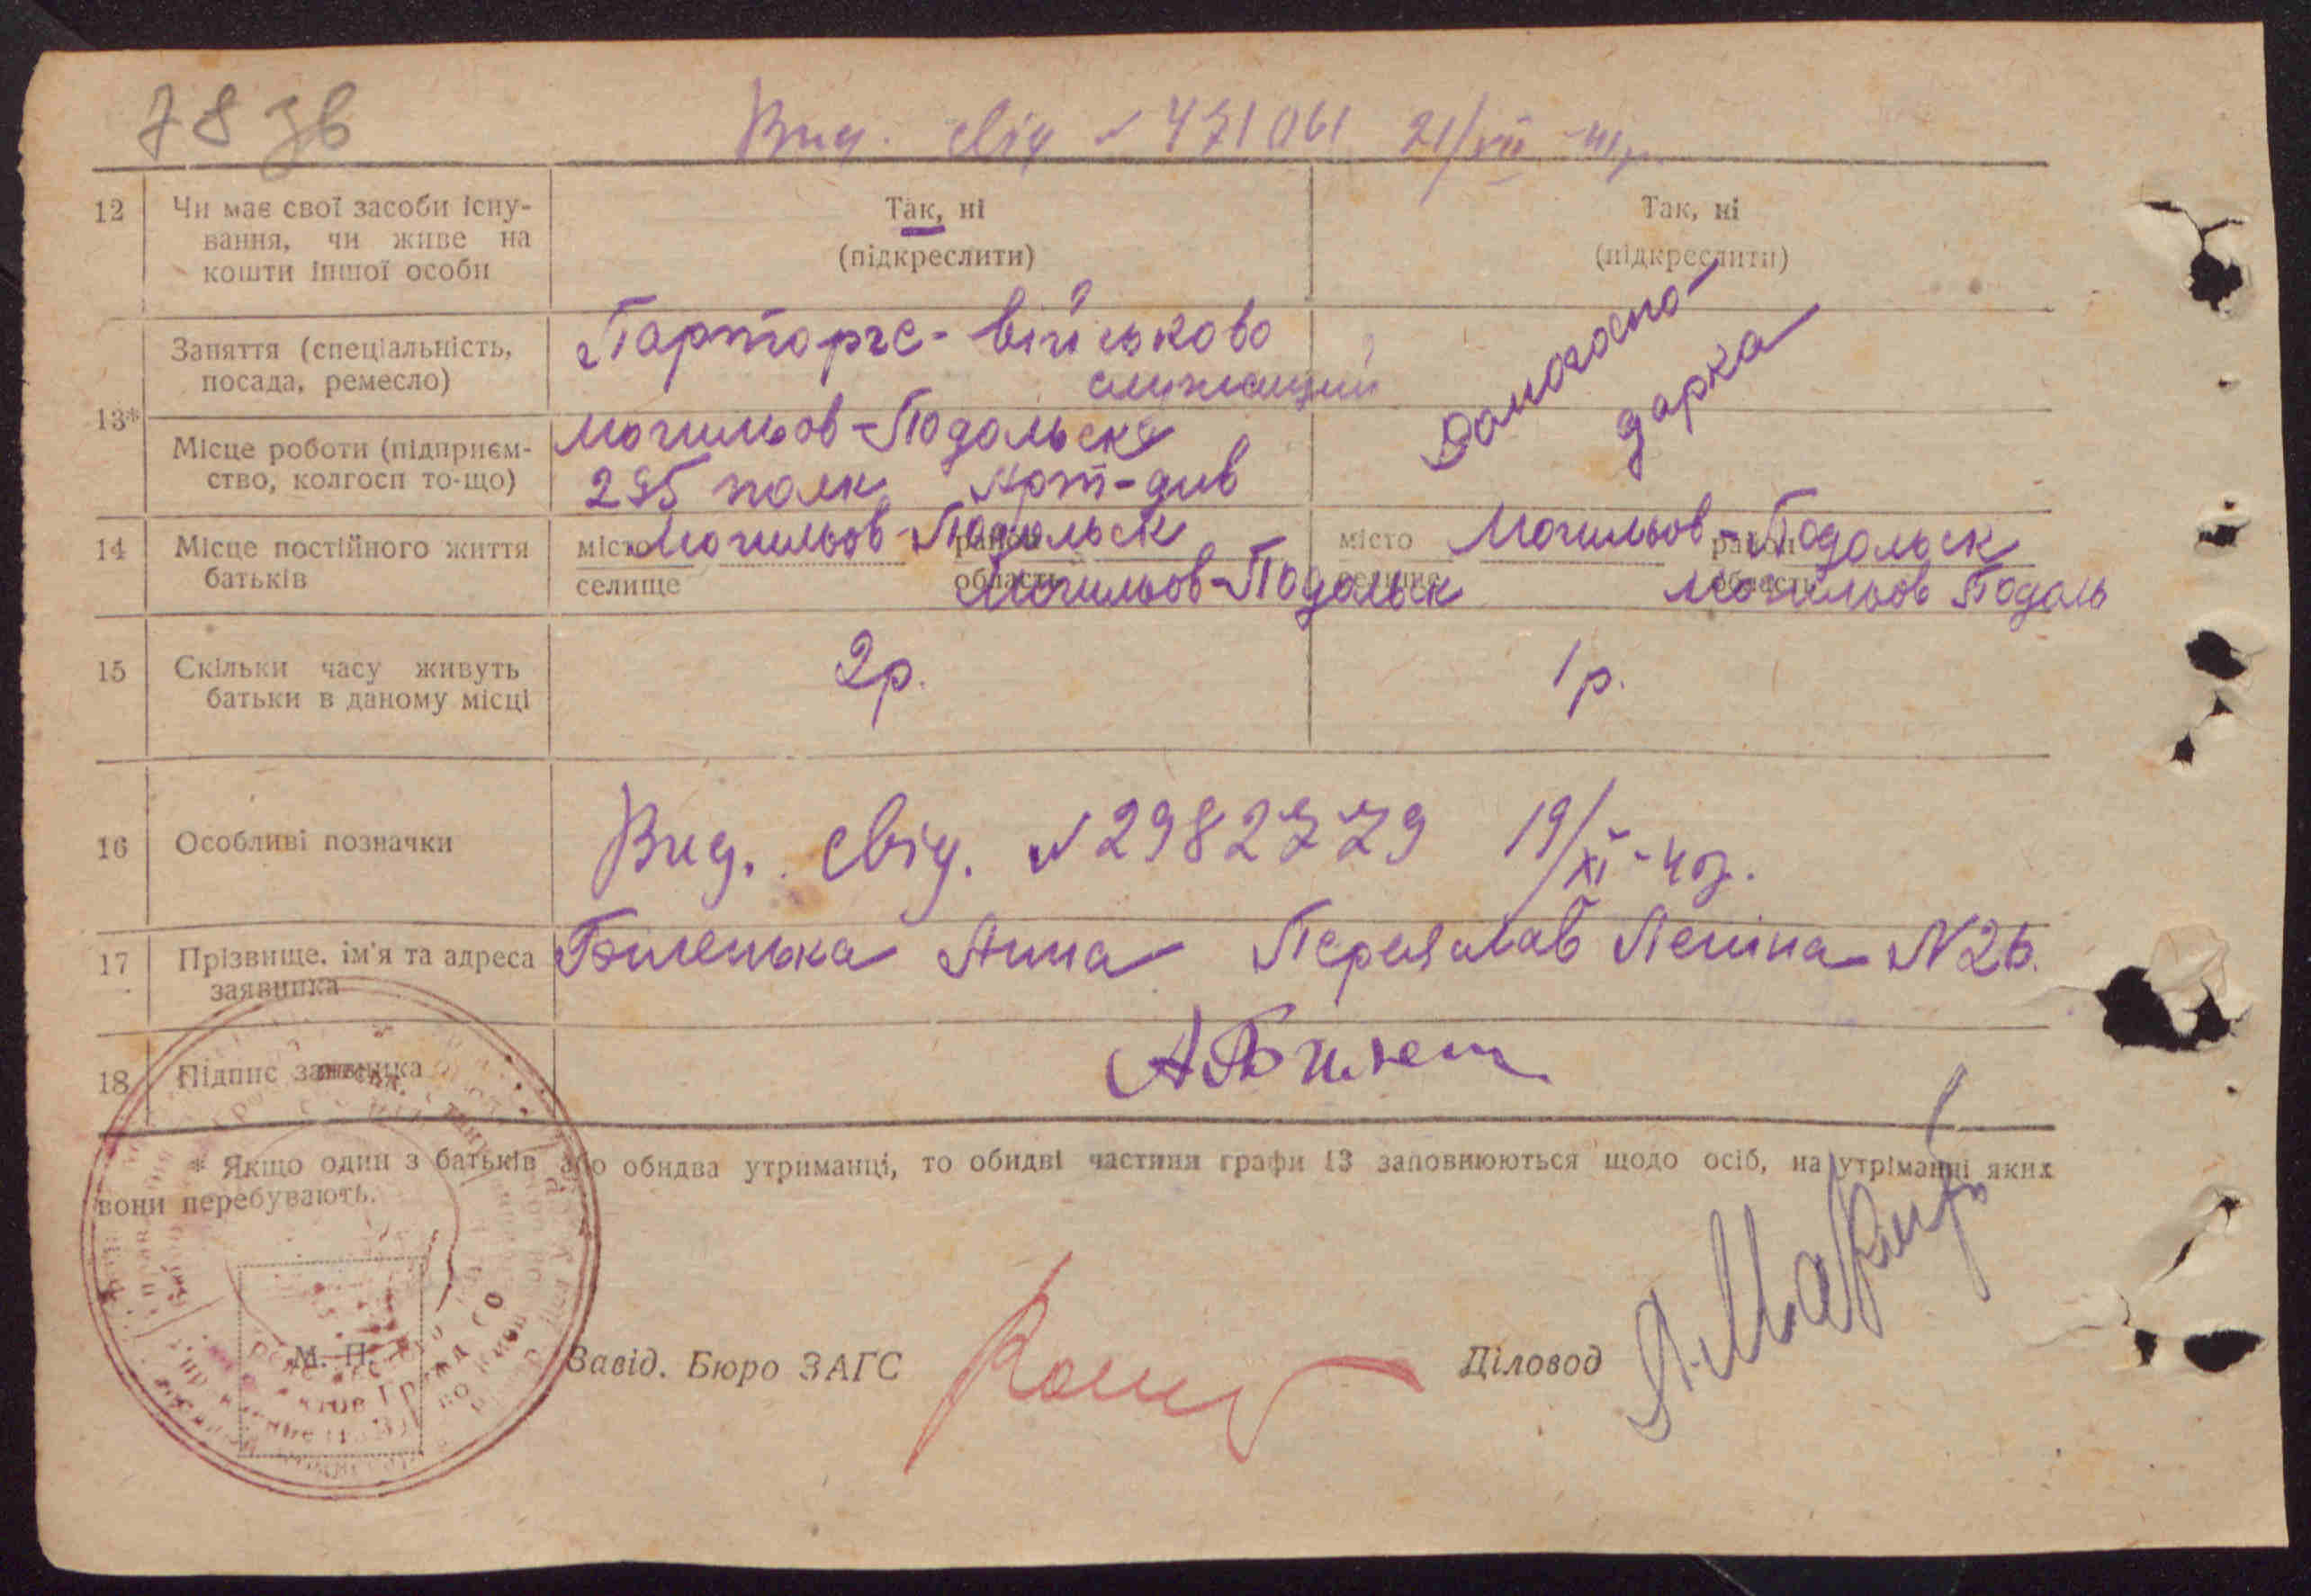 78 зв
Вид. свід № 471061 21/VII-41р.
12 Чи має свої засоби існу-
вання, чи живе на
кошти іншої особи
Так, ні
(підкреслити)
Так, ні
(підкреслити)
13*
Заняття (спеціальність,
посада, ремесло)
Парторгс-військово
служащий
Домогоспо-
дарка
Місце роботи (підприєм-
ство, колгосп то-що)
Могильов-Подольск
295 полк Арт-див
14 Місце постійного життя
батьків
місто Могильов-Подольск район
селище область Могильов-Подольск
місто Могильов-Подольск район
селище область Могильов Подоль
15 Скільки часу живуть
батьки в даному місці
2р.
1р.
16 Особливі позначки
Вид. свід. № 2982779 19/XI-40р.
17 Прізвище, ім'я та адреса
заявника
Биленька Анна Переяслав Леніна N26.
18 Підпис заявника
АБилен
* Якщо один з батьків або обидва утриманці, то обидві частини графи 13 заповнюються щодо осіб, на утріманні яких
вони перебувають.
М. П.
Завід. Бюро ЗАГС
Діловод